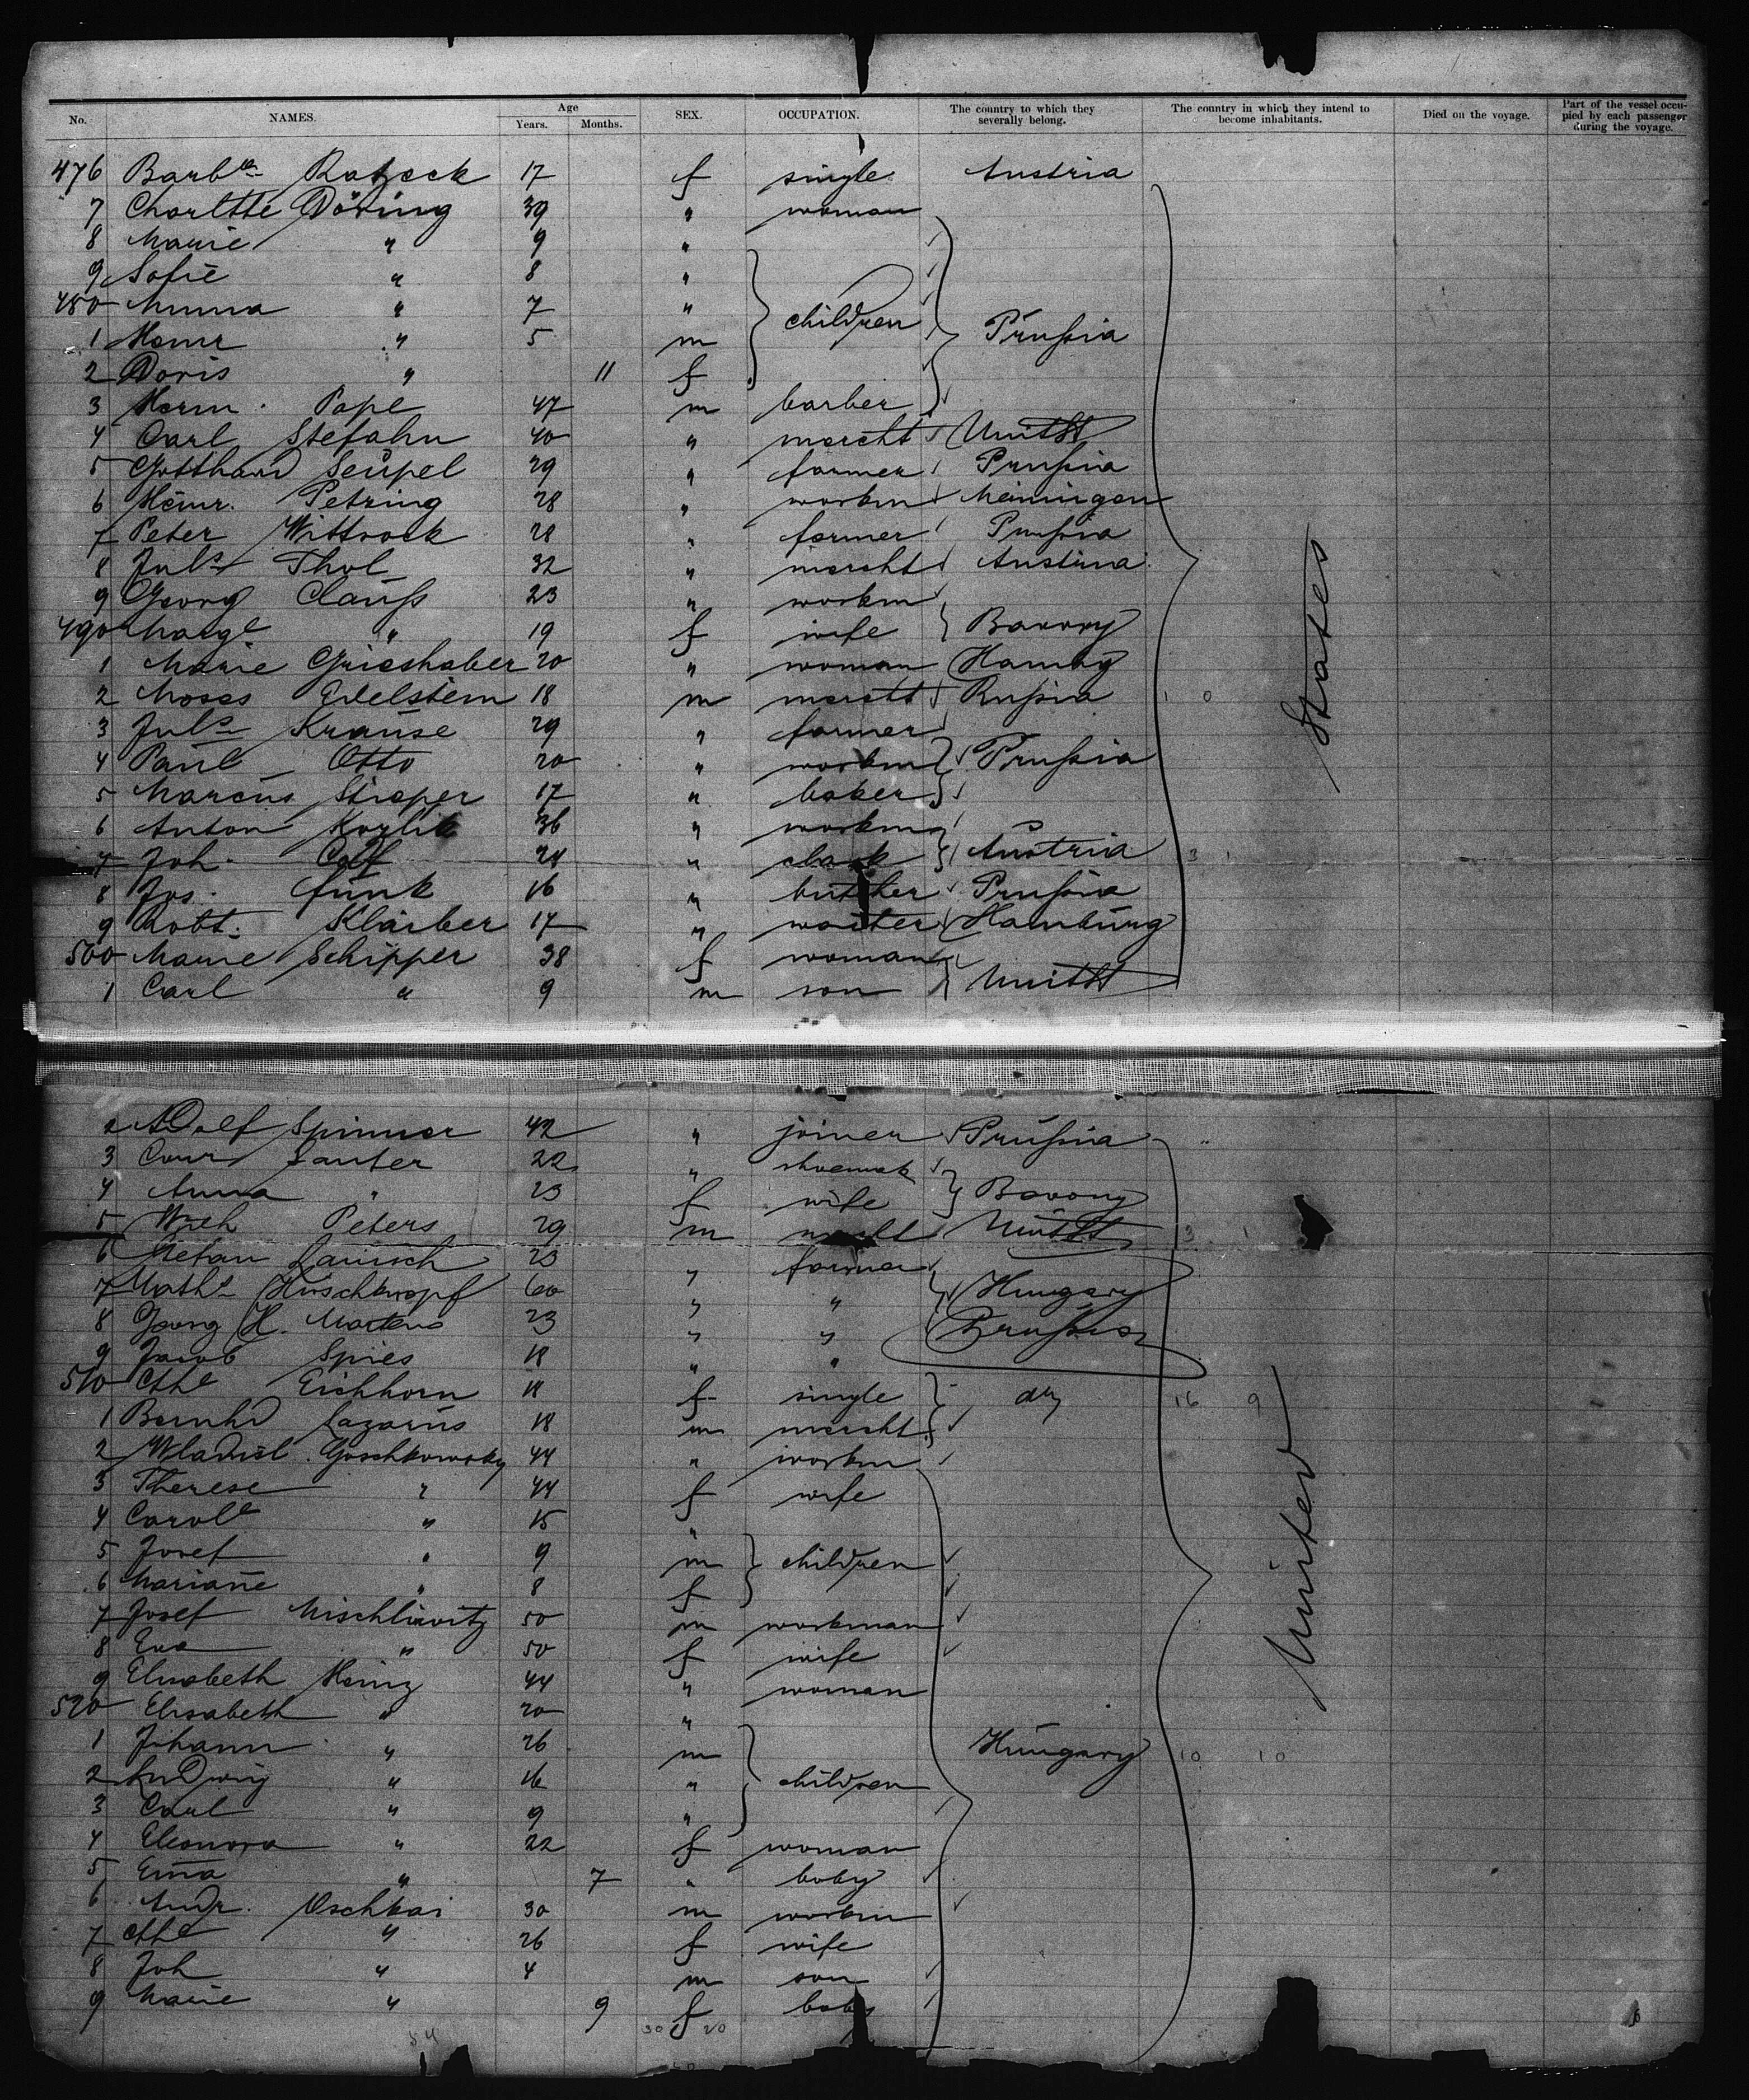 No. NAMES. Age Years. Months. SEX. OCCUPATION. The country to which they severally belong. The country in which they intend to become inhabitants. Died on the voyage. Part of the vessel occupied by each passenger during the voyage.
476 Barb^ra 17 f single Austria
7 Charltte Döring 39 " woman
8 Marie " 9 "
9 Sofie " 8 "
480 Minna " 7 " children Prussia
1 Heinr " 5 m
2 Doris " 11 f
3 Herm. Pape 47 m barber
4 Carl Stefahn 40 " morcht UnitSt
5 Gotthard Seupel 29 " farmer Prussia
6 Heinr. Petzing 28 " workm Meiningen
7 Peter Wittrock 28 " farmer Prussia
8 Jul^s Thol 32 " morcht Austria
9 Georg Clauss 23 " workm
490 Marg^e " 19 f wife Bavary
1 Marie Grieshaber 20 " woman Hambg
2 Moses Edelstein 18 m morcht Russia 1 0
3 Jul^s Krause 29 " farmer
4 Paul Otto 20 " workm Prussia
5 Marcus 17 " baker
6 Anton 36 " workm
7 Joh. 24 " clark Austria 3 1
8 Jos. Funk 16 " butcher Prussia
9 Robt. Klaiber 17 " waiter Hamburg
500 Marie Schipper 38 f woman
1 Carl " 9 m son UnitSt
States
2 Adolf Spinner 42 " joiner Prussia "
3 Conr Sauter 22 " shoemak
4 Anna " 23 f wife Bavary
5 Wilh Peters 29 m UnitSt 3 1
6 Stefan 23 " farmer
7 Math^s 60 " " Hungary
8 Georg H. Martens 23 " " Prussia
9 Jacob Spies 18 " "
510 Cth^e Eichhorn 18 f single do 16 9
1 Bernhd Lazarus 18 m morcht
2 Wladisl. Goschkowsky 44 " workm
3 Therese " 44 f wife
4 Carol^e " 15 "
5 Josef " 9 m children
6 Mariane " 8 f
7 Josef Mischlivitz 50 m workman
8 Eva " 50 f wife
9 Elisabeth Heinz 44 " woman
520 Elisabeth " 20 "
1 Johann " 26 m Hungary 10 10
2 Ludwig " 16 " children
3 Carl " 9 "
4 Eleonora " 22 f woman
5 Ema " 7 " baby
6 Andr. Oschkai 30 m workm
7 Cth^e " 26 f wife
8 Joh " 4 m son
9 Marie " 9 f baby
United
54 30 20